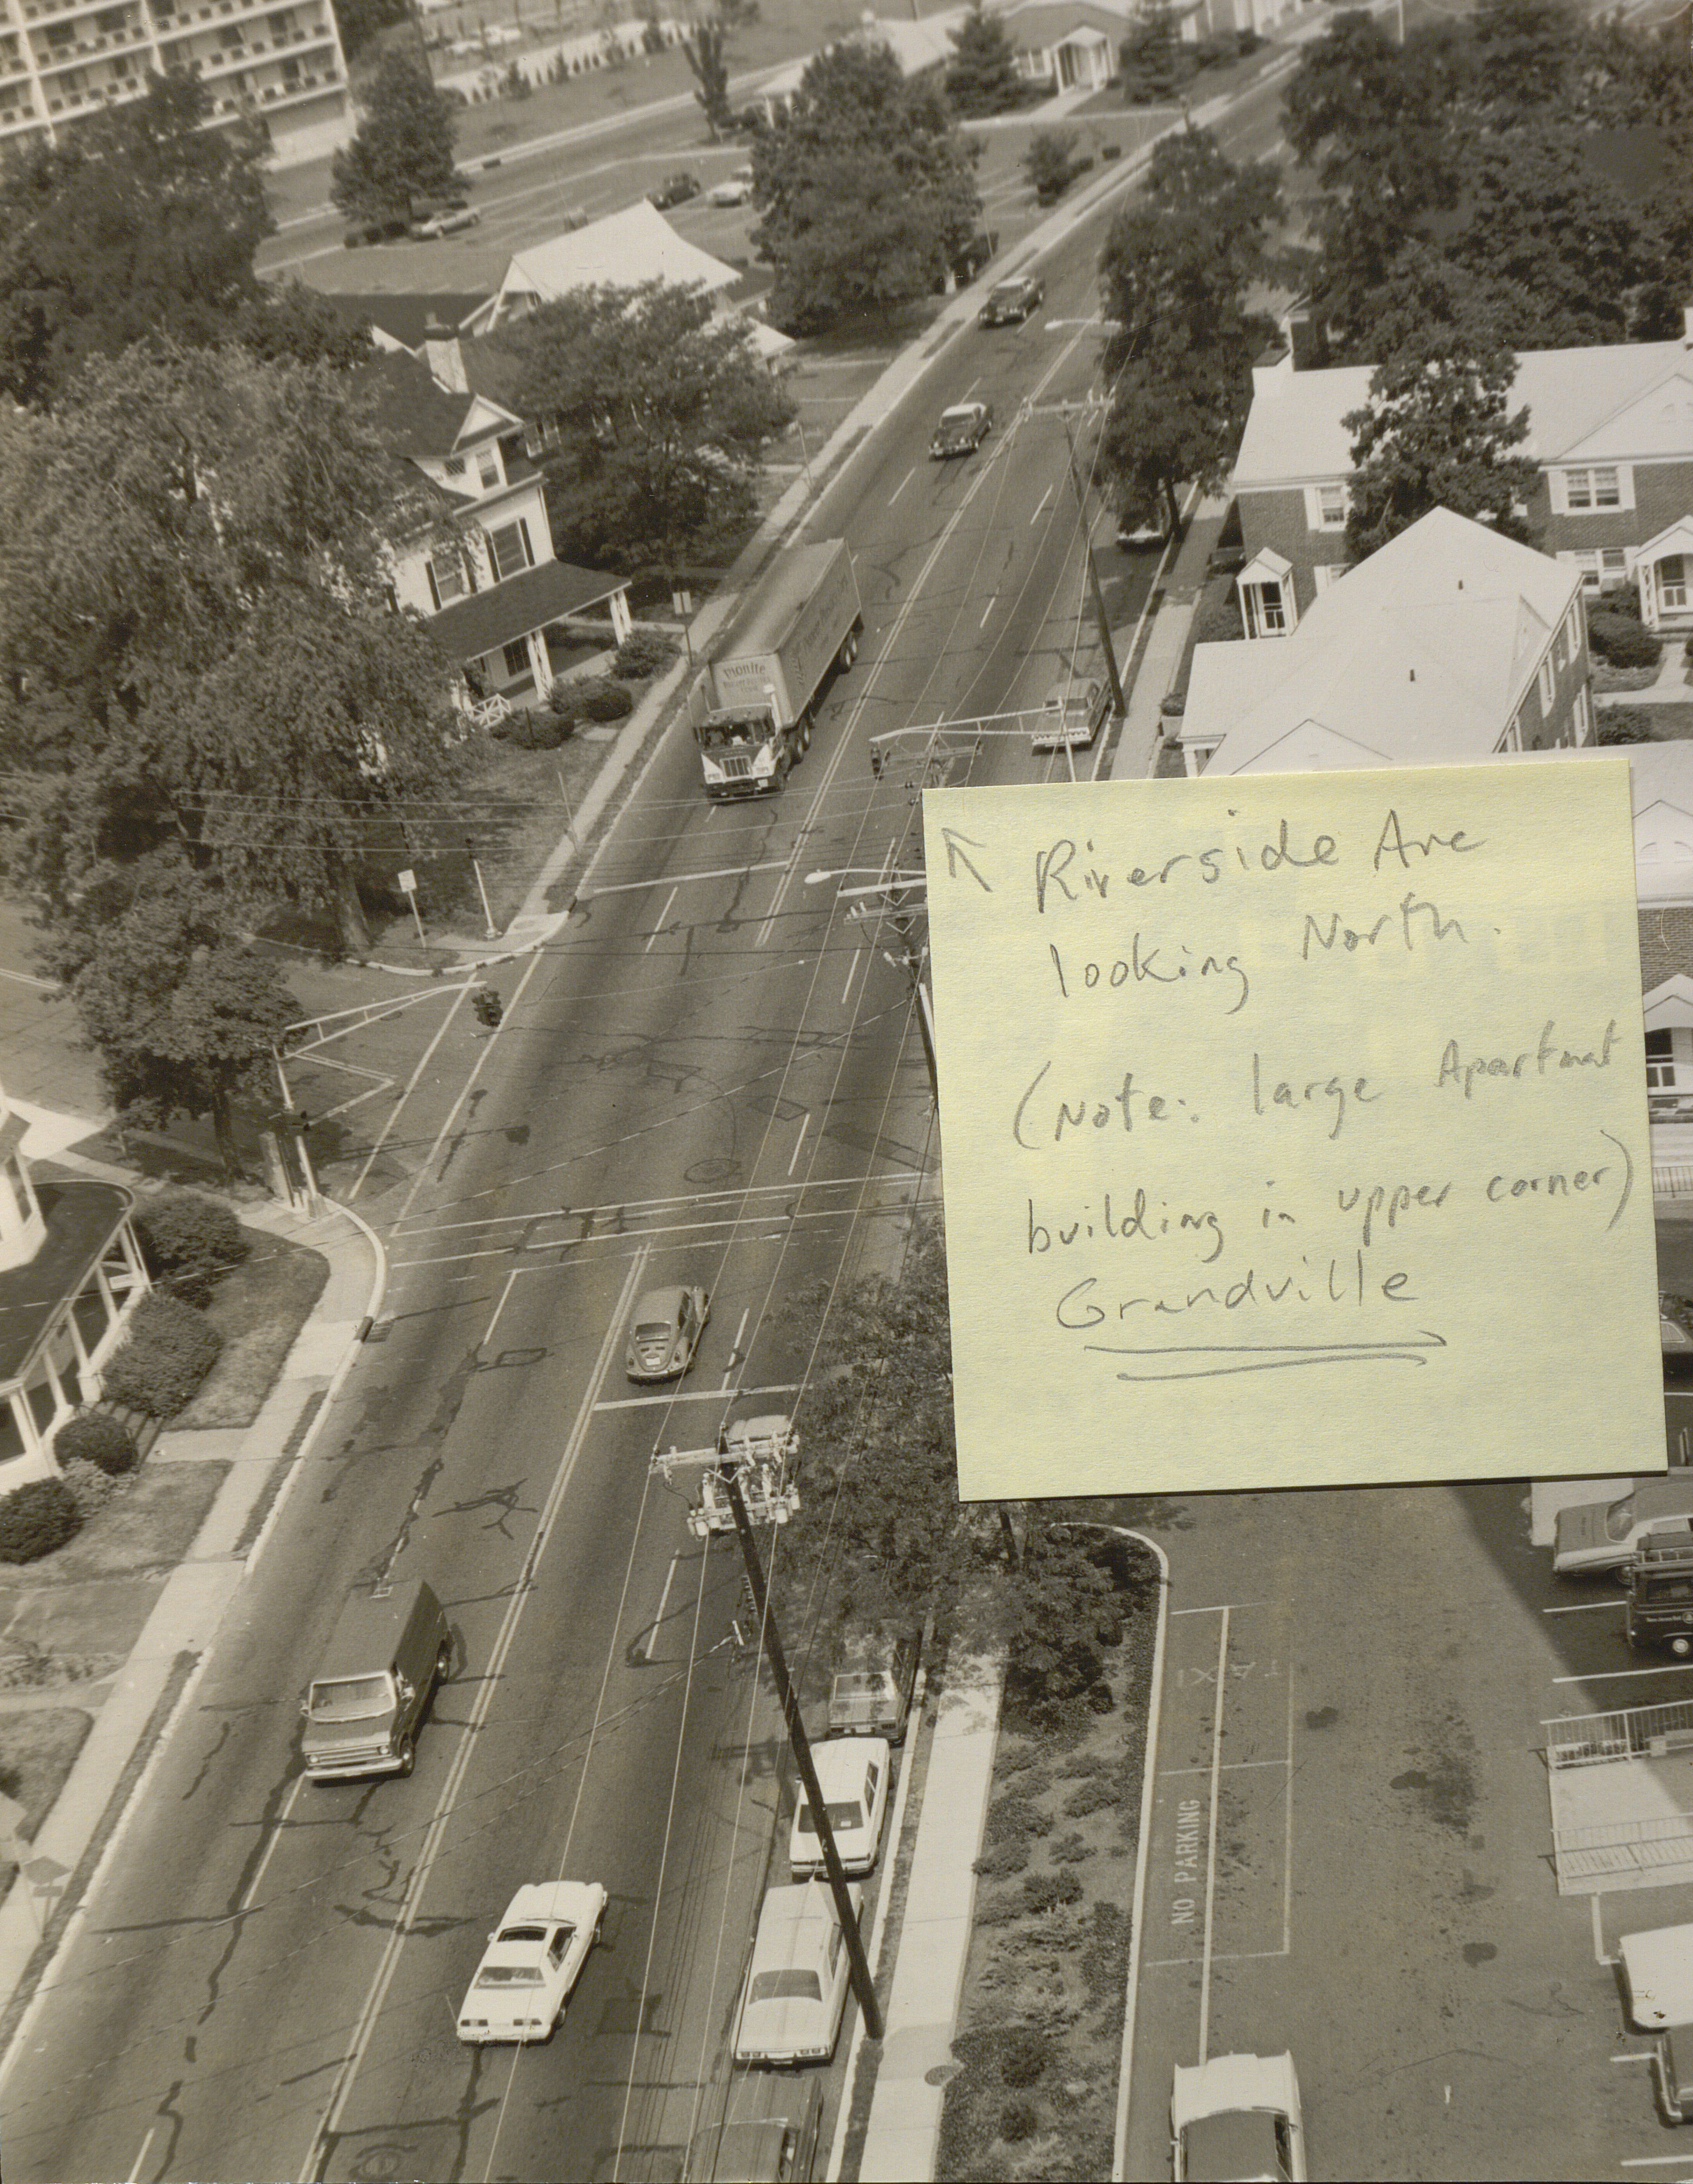 PIONITE
Riverside Ave
looking North.
(Note: large Apartmat
building in upper corner)
Grandville
TAXI
NO PARKING